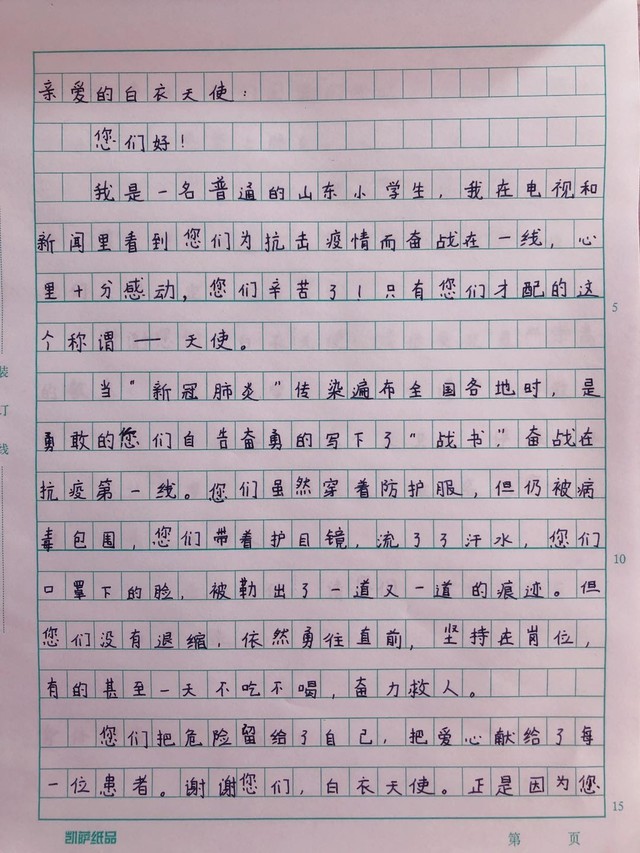 亲爱的白衣天使：
您们好！
我是一名普通的山东小学生，我在电视和
新闻里看到您们为抗击疫情而奋战在一线，心
里十分感动，您们辛苦了！只有您们才配的这
个称谓——天使。
当“新冠肺炎”传染遍布全国各地时，是
勇敢的您们自告奋勇的写下了“战书”，奋战在
抗疫第一线。您们虽然穿着防护服，但仍被病
毒包围，您们带着护目镜，流了了汗水，您们
口罩下的脸，被勒出了一道又一道的痕迹。但
您们没有退缩，依然勇往直前，坚持在岗位，
有的甚至一天不吃不喝，奋力救人。
您们把危险留给了自己，把爱心献给了每
一位患者。谢谢您们，白衣天使。正是因为您
5
10
15
装
订
线
凯萨纸品
第 页